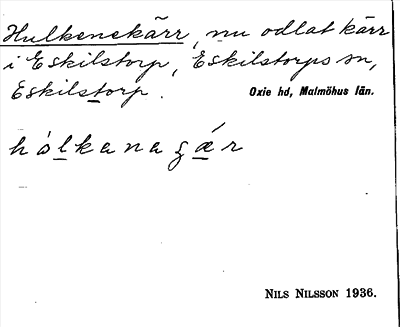 Hulkenekärr, nu odlat kärr
i Eskilstorp, Eskilstorps sn,
Eskilstorp.
Oxie hd, Malmöhus län.
hólkanagǽr
NILS NILSSON 1936.